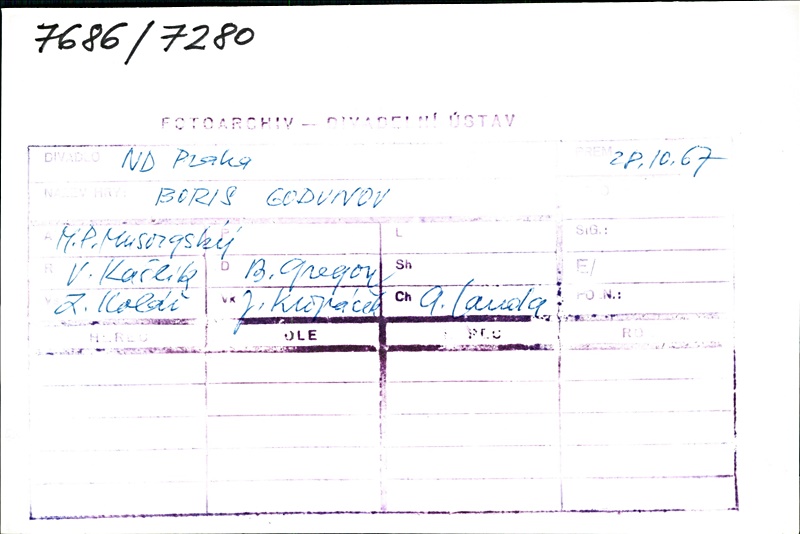 7686/7280
FOTOARCHIV — DIVADELNÍ ÚSTAV
DIVADLO ND Praha 28.10.67
NÁZEV HRY BORIS GODUNOV
M.P. Musorgský L SIG.:
R V. Kašlík D B. Gregor Sh E/
V Z. Koldi VK J. Kropáček Ch A. Landa PO.N.:
DLE